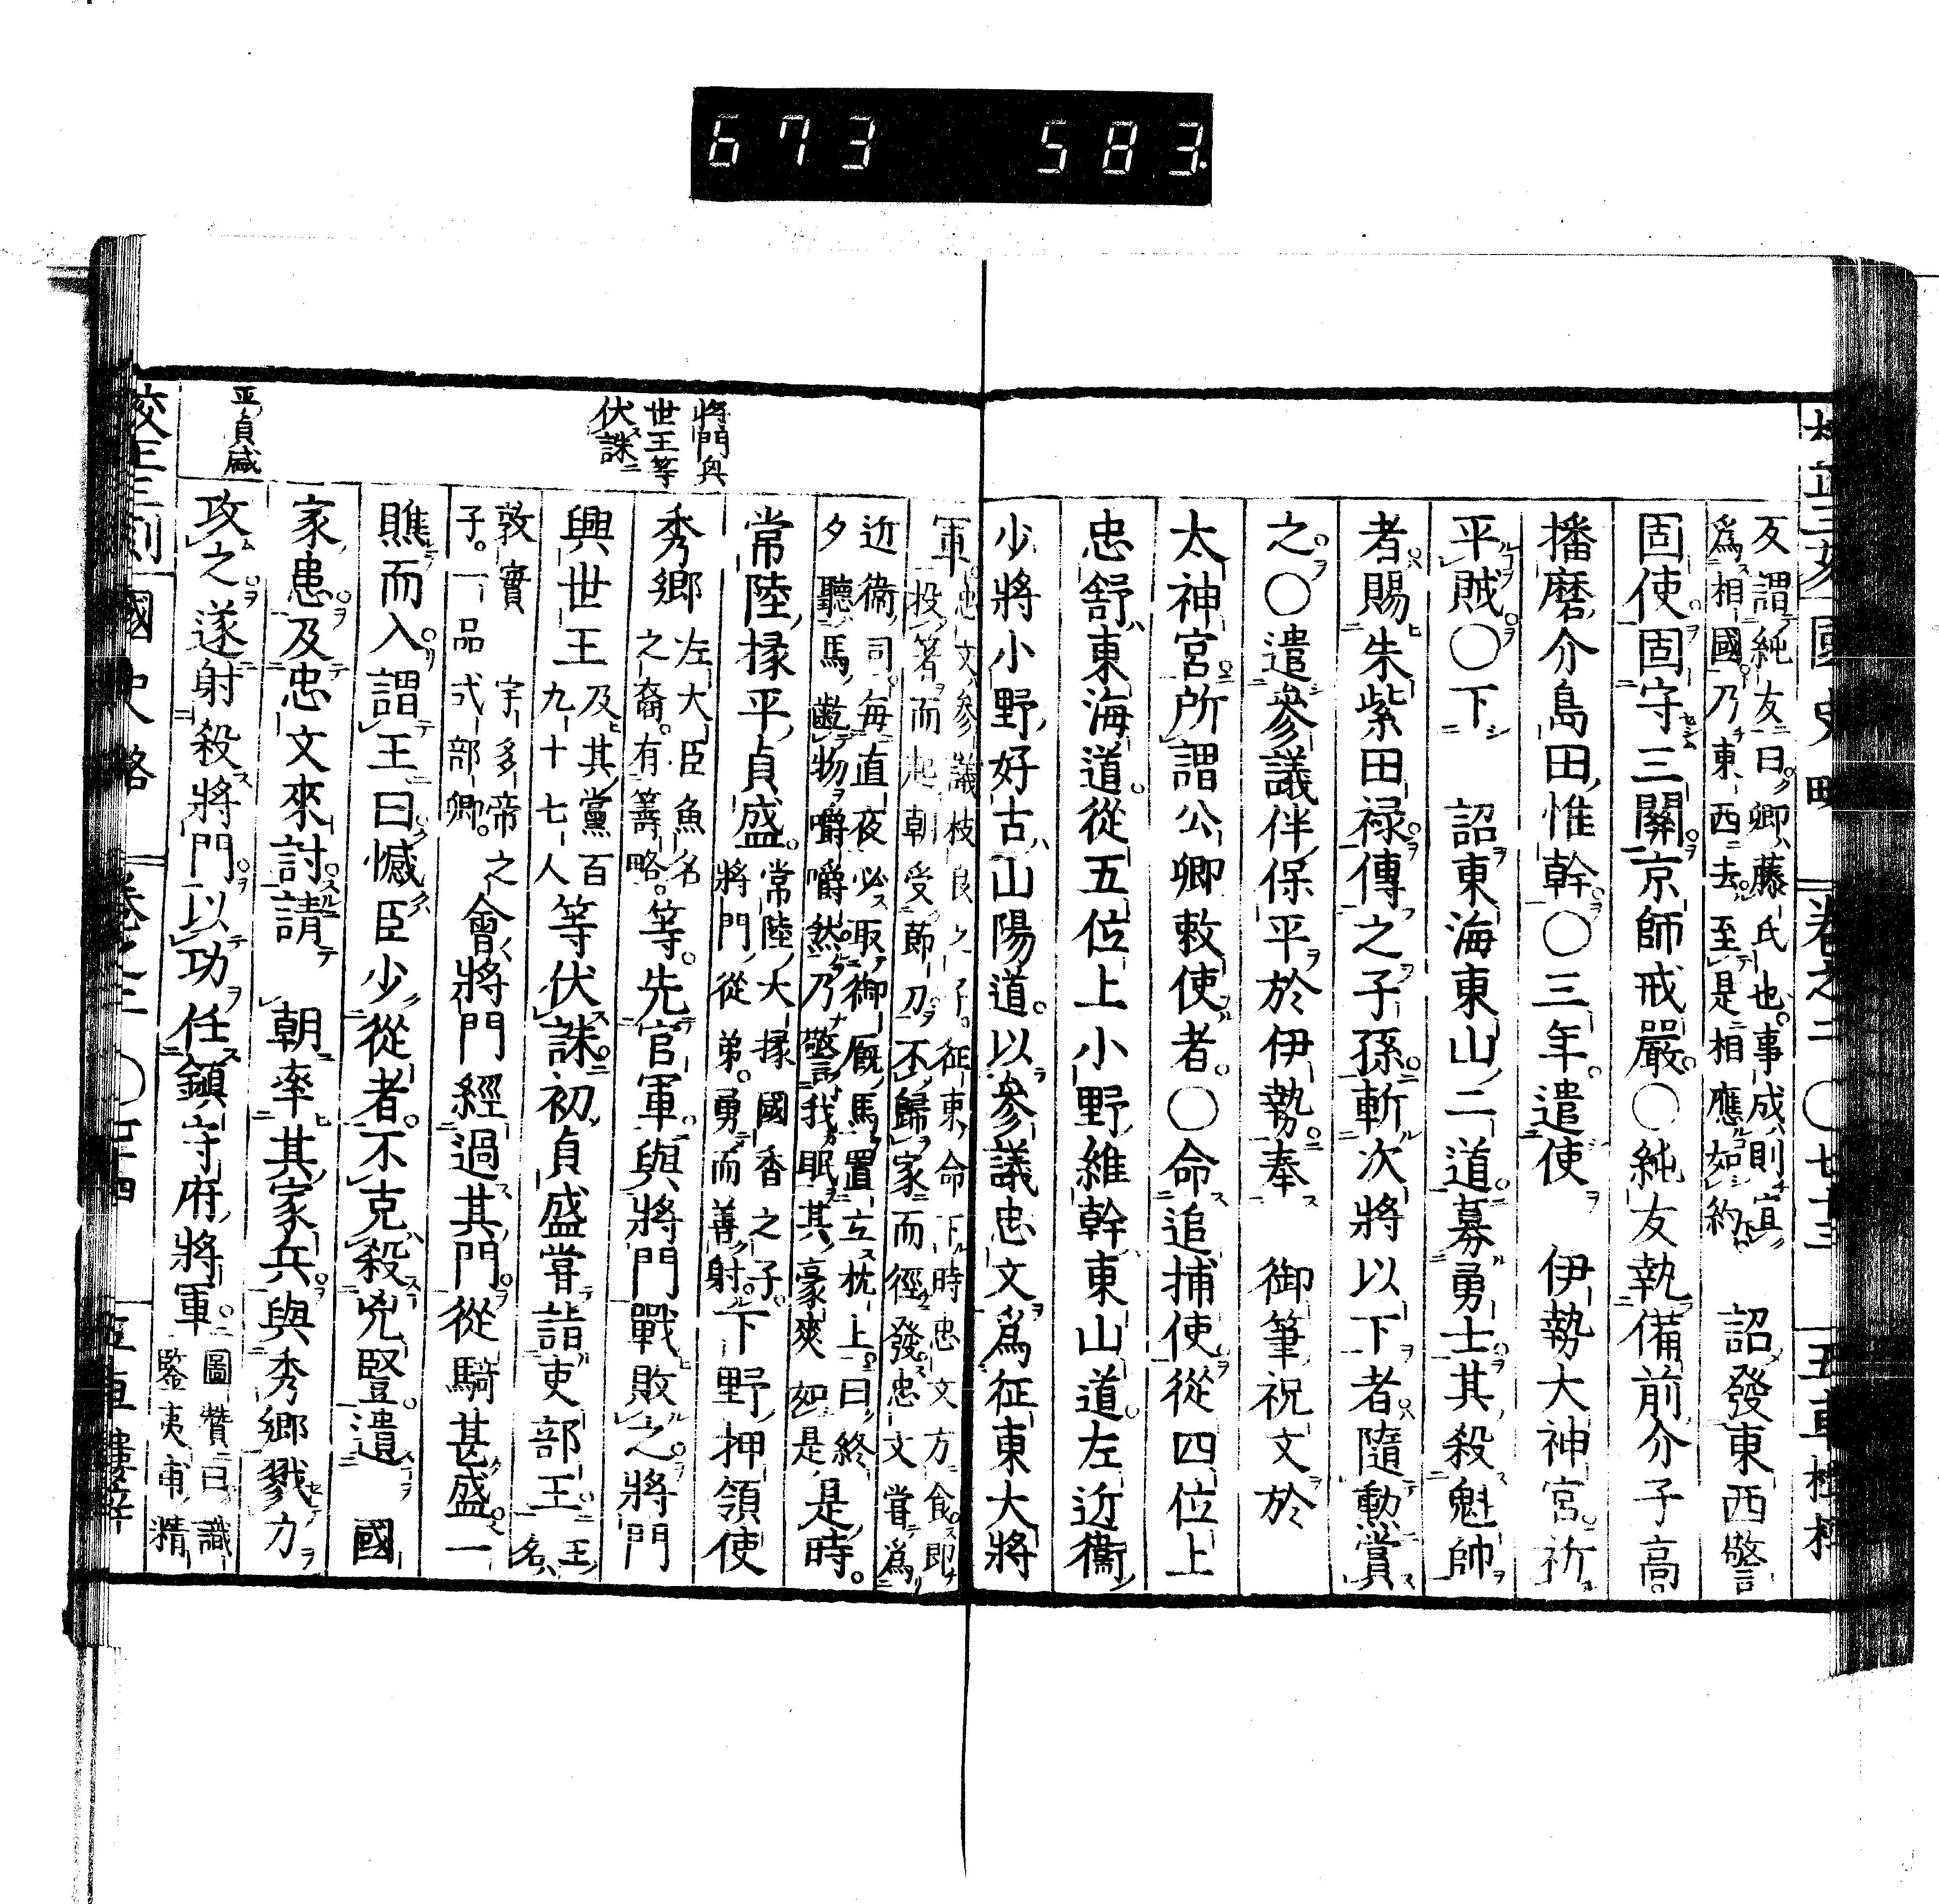 673 583
國史略 卷之二 〇七十三
友謂純友曰卿藤氏也事成則宜
爲相國乃東西去至是相應如約
詔發東西警
固使固守三關京師戒嚴〇純友執備前介子高
播磨介島田惟幹〇三年遣使 伊勢大神宮祈
平賊〇下 詔東海東山二道募勇士其殺魁帥
者賜朱紫田祿傳之子孫斬次將以下者隨勳賞
之〇遣參議伴保平於伊勢奉 御筆祝文於
太神宮所謂公卿敕使者〇命追捕使從四位上
忠舒東海道從五位上小野維幹東山道左近衞
少將小野好古山陽道以參議忠文爲征東大將
軍
忠文參議枝良之子征東命下時忠文方食即
投箸而起朝受節刀不歸家而徑發忠文嘗爲
近衞司每直夜必取御厩馬置立枕上曰終
夕聽馬齕物嚼嚼然乃警我眠其豪爽如是
是時
常陸掾平貞盛
常陸大掾國香之子
將門從弟勇而善射
下野押領使
秀鄉
左大臣魚名
之裔有籌略
等先官軍與將門戰敗之將門
興世王
及其黨百
九十七人
等伏誅初貞盛嘗詣吏部王
王名
敦實宇多帝之
子一品式部卿
會將門經過其門從騎甚盛一
瞧而入謂王曰憾臣少從者不克殺兇豎遺 國
家患及忠文來討請 朝率其家兵與秀鄉戮力
攻之遂射殺將門以功任鎮守府將軍
圖贊曰識
鑒夷甫精
將門與
世王等
伏誅
平貞盛
國史略